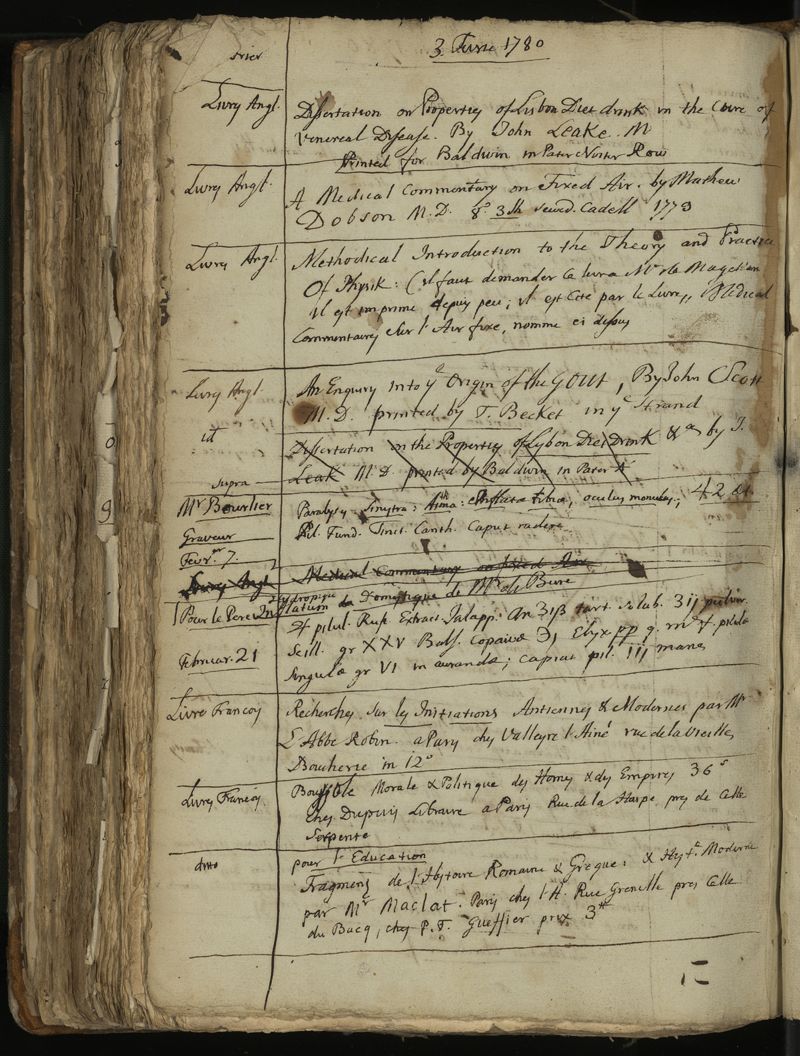 3 June 1780
Livry Angl.
Dissertation on Properties of Lisbon Diet drink in the Cure of
Venereal Disease. By John Leake. M
Printed for Baldwin in Pater Noster Row
Livry Angl.
A Medical Commentary on Fixed Air. by Mathew
Dobson M.D. 8° 3sh sewd. Cadell 1779
Livry Angl.
Methodical Introduction to the Theory and Practice
Of Physik: (il faut demander la
il est imprime depuy peu; il est Cité par le Livre,, Medical
Commentaires Sur l'Air fixe, nomme ci dessus
Livry Angl.
An Enquiry into ye Origin of the GOUT, By John Scott
M.D. printed by T. Becket in ye Strand
id
Dissertation on the Properties of Lysbon Diet Drink &a by J.
supra
Leak M.D printed by Baldwin in Pater N
Mr Bourlier
Paralysy Sinystra: oculus 42 at
Graveur
Pil. Fund. Tinct. Canth. Caput radere
Fevrer 7.
Livry Angl
Medical Commentary on fixed Air
Hydropique
Pour le Pere Domestique de Mr de Bure
pilul. Ruf. Extract. Jalapp: an 3iß tart. solub. 3ij pulver.
Scill. gr XXV Bals. Copaivæ Elyx pp q.
Februar. 21
Singula gr VI in auranda; capiat pil. iij mane
Livre Francoy
Recherches Sur les Initiations Anciennes & Modernes par Mr
L'Abbe Robin. a Pary chez Valleyre l'Ainé rue de la Vieille
Boucherie in 12°
Livry Francoy
Boussole Morale & Politique des Homes & des Empires 36s
chez Dupuis Libraire a Pary Rue de la Harpe pres de Celle
Serpente
dtto
pour l'Education
Fragmens de l'Hystoire Romaine & Greque: & Hyst. Moderne
par Mr Maclat. Pary chez l'A. Rue Grenelle pres Celle
du Bacq, chez P.F. Gueffier prix 3tt